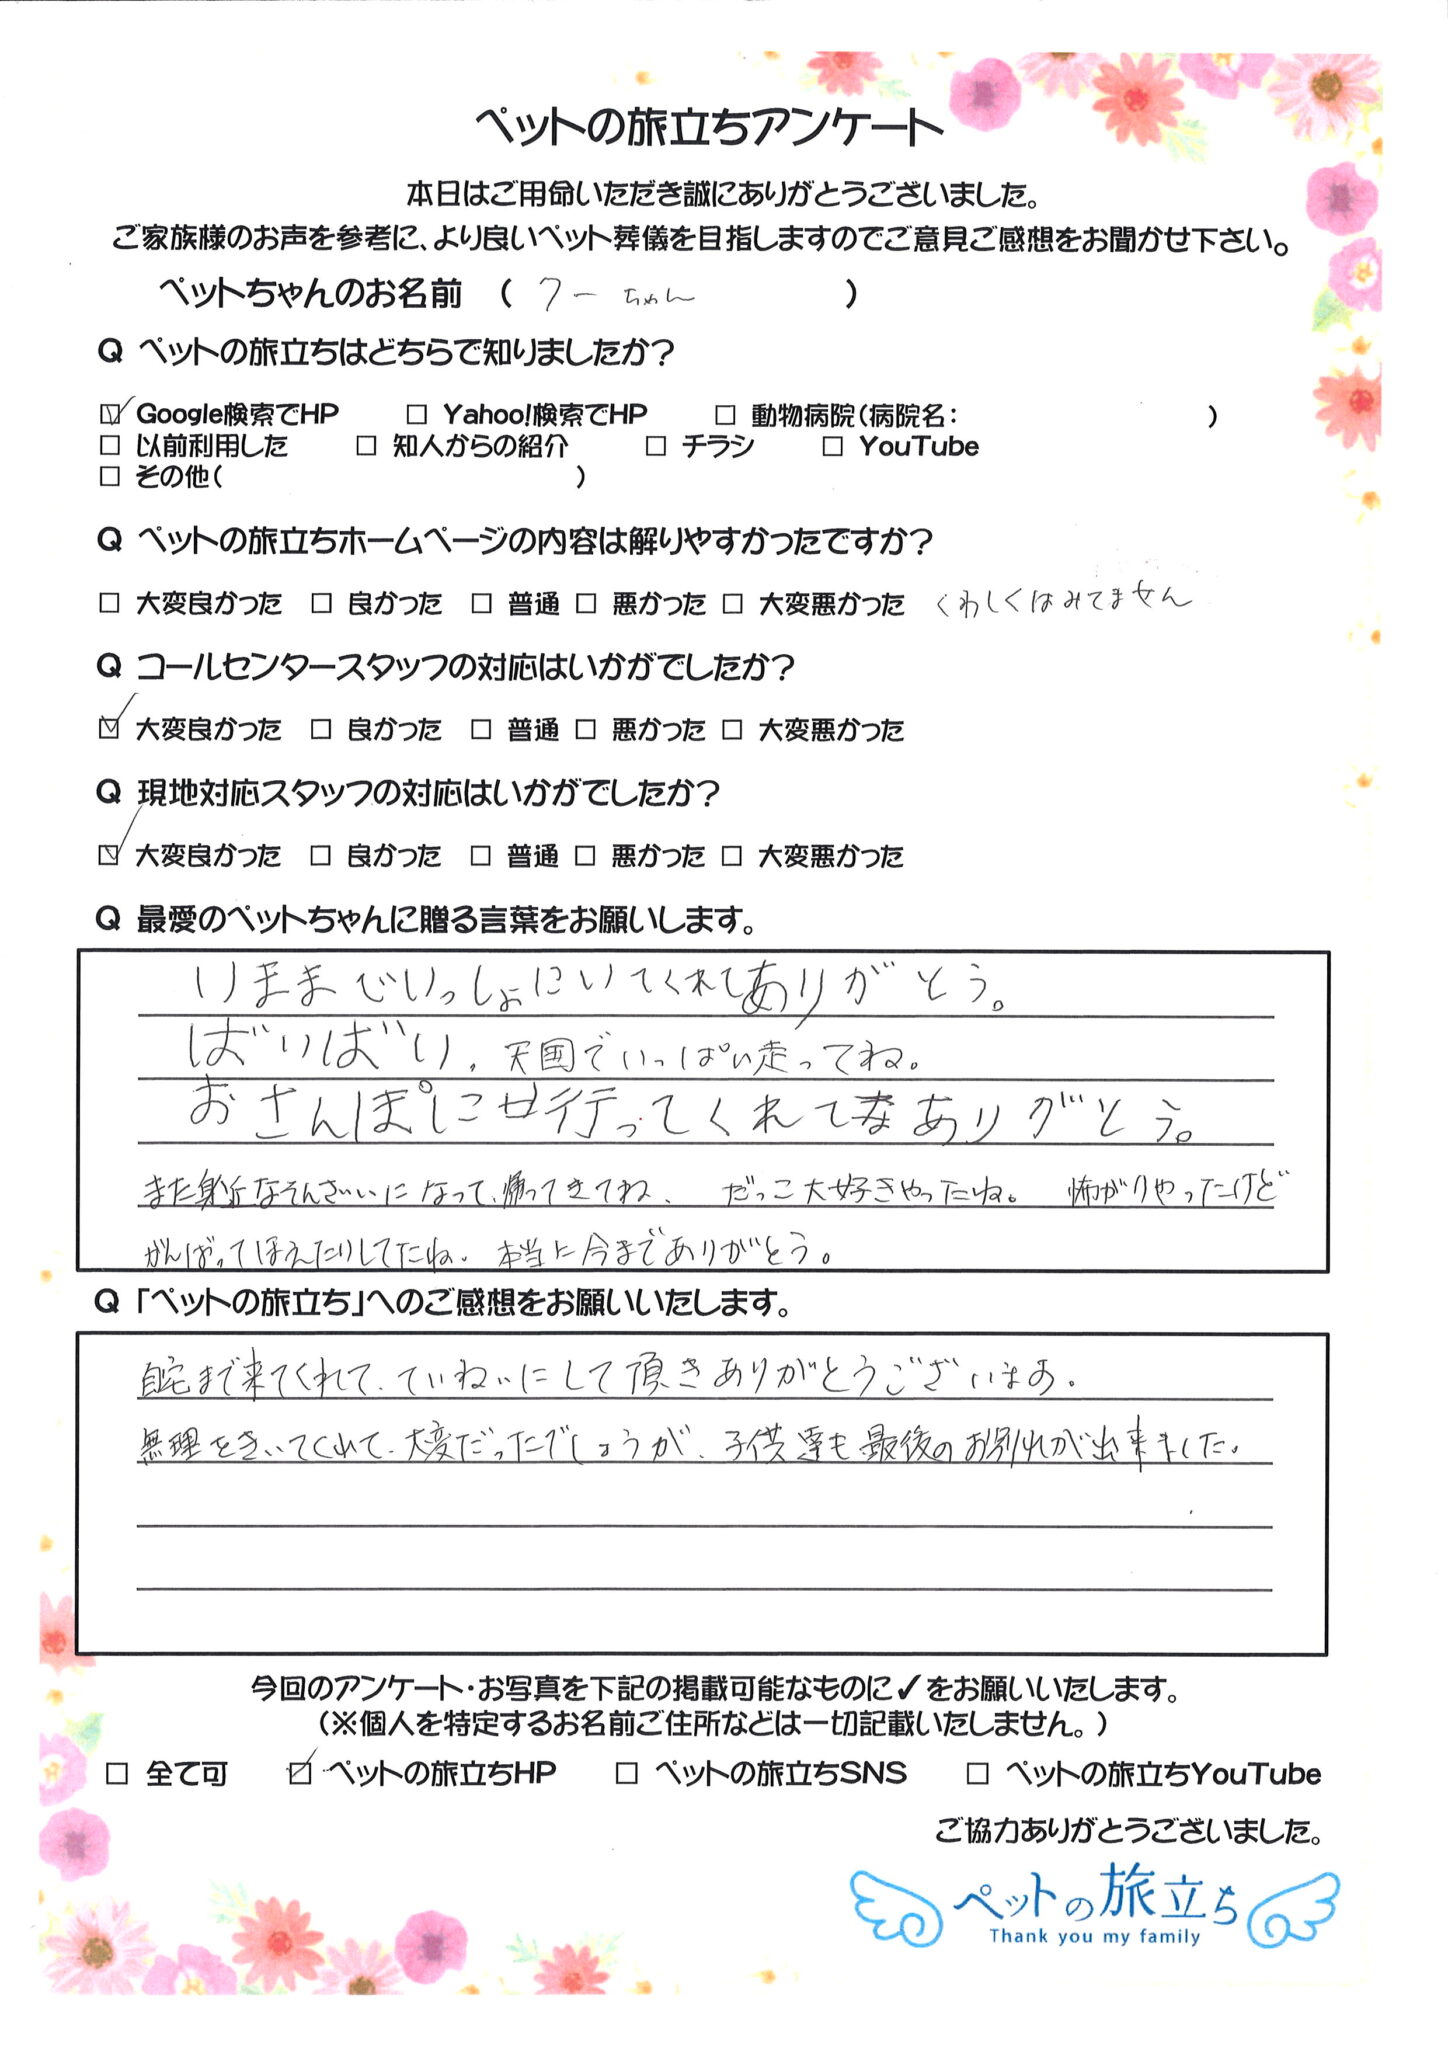 ペットの旅立ちアンケート
本日はご用命いただき誠にありがとうございました。
ご家族様のお声を参考に、より良いペット葬儀を目指しますのでご意見ご感想をお聞かせ下さい。
ペットちゃんのお名前 ( クーちゃん )
Q ペットの旅立ちはどちらで知りましたか?
☑ Google検索でHP □ Yahoo!検索でHP □ 動物病院(病院名: )
□ 以前利用した □ 知人からの紹介 □ チラシ □ YouTube
□ その他( )
Q ペットの旅立ちホームページの内容は解りやすかったですか?
□ 大変良かった □ 良かった □ 普通 □ 悪かった □ 大変悪かった くわしくはみてません
Q コールセンタースタッフの対応はいかがでしたか?
☑ 大変良かった □ 良かった □ 普通 □ 悪かった □ 大変悪かった
Q 現地対応スタッフの対応はいかがでしたか?
☑ 大変良かった □ 良かった □ 普通 □ 悪かった □ 大変悪かった
Q 最愛のペットちゃんに贈る言葉をお願いします。
いままでいっしょにいてくれてありがとう。
ばいばい、天国でいっぱい走ってね。
おさんぽに行ってくれてありがとう。
また身近なそんざいになって、帰ってきてね、 だっこ大好きやったね。 怖がりやったけど
がんばってほえたりしてたね。本当に今までありがとう。
Q 「ペットの旅立ち」へのご感想をお願いいたします。
自宅まで来てくれて、ていねいにして頂きありがとうございます。
無理をきいてくれて、大変だったでしょうが、子供達も最後のお別れが出来ました。
今回のアンケート・お写真を下記の掲載可能なものに✓をお願いいたします。
(※個人を特定するお名前ご住所などは一切記載いたしません。)
□ 全て可 ☑ ペットの旅立ちHP □ ペットの旅立ちSNS □ ペットの旅立ちYouTube
ご協力ありがとうございました。
ペットの旅立ち
Thank you my family